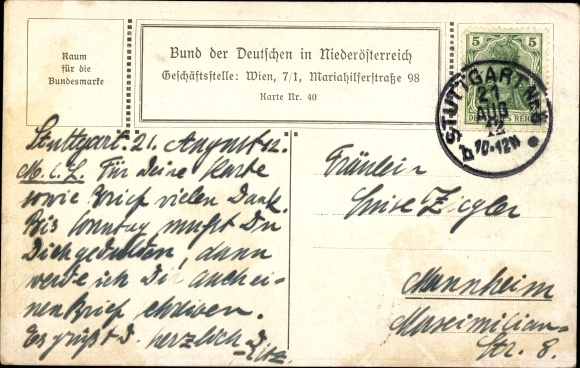 Raum
für die
Bundesmarke
Bund der Deutschen in Niederösterreich
Geschäftsstelle: Wien, 7/1, Mariahilferstraße 98
Karte Nr. 40
5 5
DEUTSCHES REICH
STUTTGART No. 6
21
AUG
12
10-11V
Stuttgart. 21. August 12.
M. c. L. Für Deine Karte
sowie Brief vielen Dank.
Bis Sonntag mußt Du
Dich gedulden, dann
werde ich Dir auch ei-
nen Brief
Es grüßt D. herzlich
Fräulein
Luise Ziegler
Mannheim
Maximilian-
Str. 8.